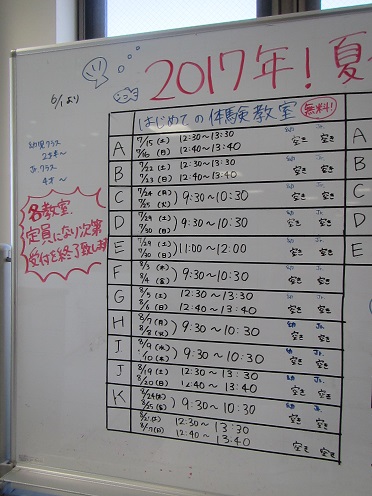 2017年!夏
6/1より
はじめての体験教室 無料!
幼児クラス
2才半~
Jr.クラス
4才~
各教室、
定員になり次第
受付を終了致します
A 7/15(土) 12:30~13:30 空き 空き
7/16(日) 12:40~13:40
B 7/22(土) 12:30~13:30 空き 空き
7/23(日) 12:40~13:40
C 7/24(月) 9:30~10:30 空き 空き
7/25(火)
D 7/29(土) 9:30~10:30 空き 空き
7/30(日)
E 7/29(土) 11:00~12:00 空き 空き
7/30(日)
F 8/3(木) 9:30~10:30 空き 空き
8/4(金)
G 8/5(土) 12:30~13:30 空き 空き
8/6(日) 12:40~13:40
H 8/7(月) 9:30~10:30 空き 空き
8/8(火)
I 8/9(水) 9:30~10:30 空き 空き
8/10(木)
J 8/19(土) 12:30~13:30 空き 空き
8/20(日) 12:40~13:40
K 8/24(木) 9:30~10:30 空き 空き
8/25(金)
12:30~13:30 空き 空き
12:40~13:40
A
B
C
D
E